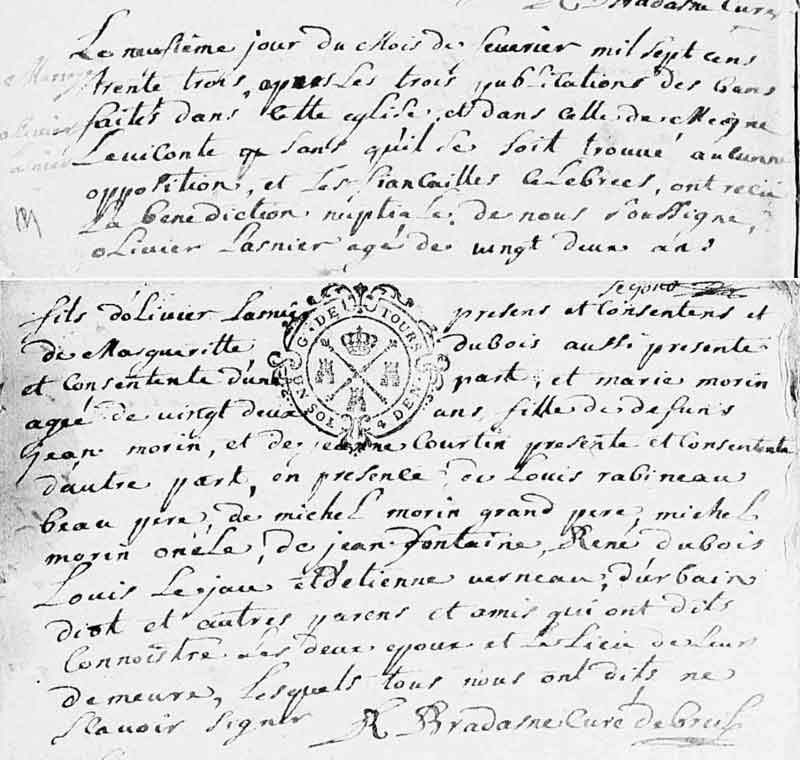 R Bradasne Curé
Le neufième jour du Mois de fevrier mil sept cens
Mariage
trente trois, apres Les trois publications des bans
faites dans Cette eglise, et dans Celle de
olivier
Leviconte sans qu'il se soit trouvé aucunne
lanier
opposition, et Les fiancailles Celebrees, ont reçu
La benediction nuptiale de nous soussigné,
olivier Lasnier agé de vingt deux ans
segond
fils d'olivier Lasnier presens et Consentens et
de Margueritte dubois aussi presente
et Consentente d'une part, et marie morin
agée de vingt deux ans fille de defuns
jean morin, et de jeanne Courtin presente et Consentente
d'autre part, en presence de Louis rabineau
beau pere, de michel morin grand pere, michel
morin oncle, de jean fontaine, René dubois
Louis Lejau et d'etienne verneau, d'urbain
diot et autres parens et amis qui ont dits
Connoistre Les deux epoux et Le Lieu de Leur
demeure, Lesquels tous nous ont dits ne
sçavoir signer R Bradasne Curé de breil
G. DE TOURS
UN SOL 4 DEN.